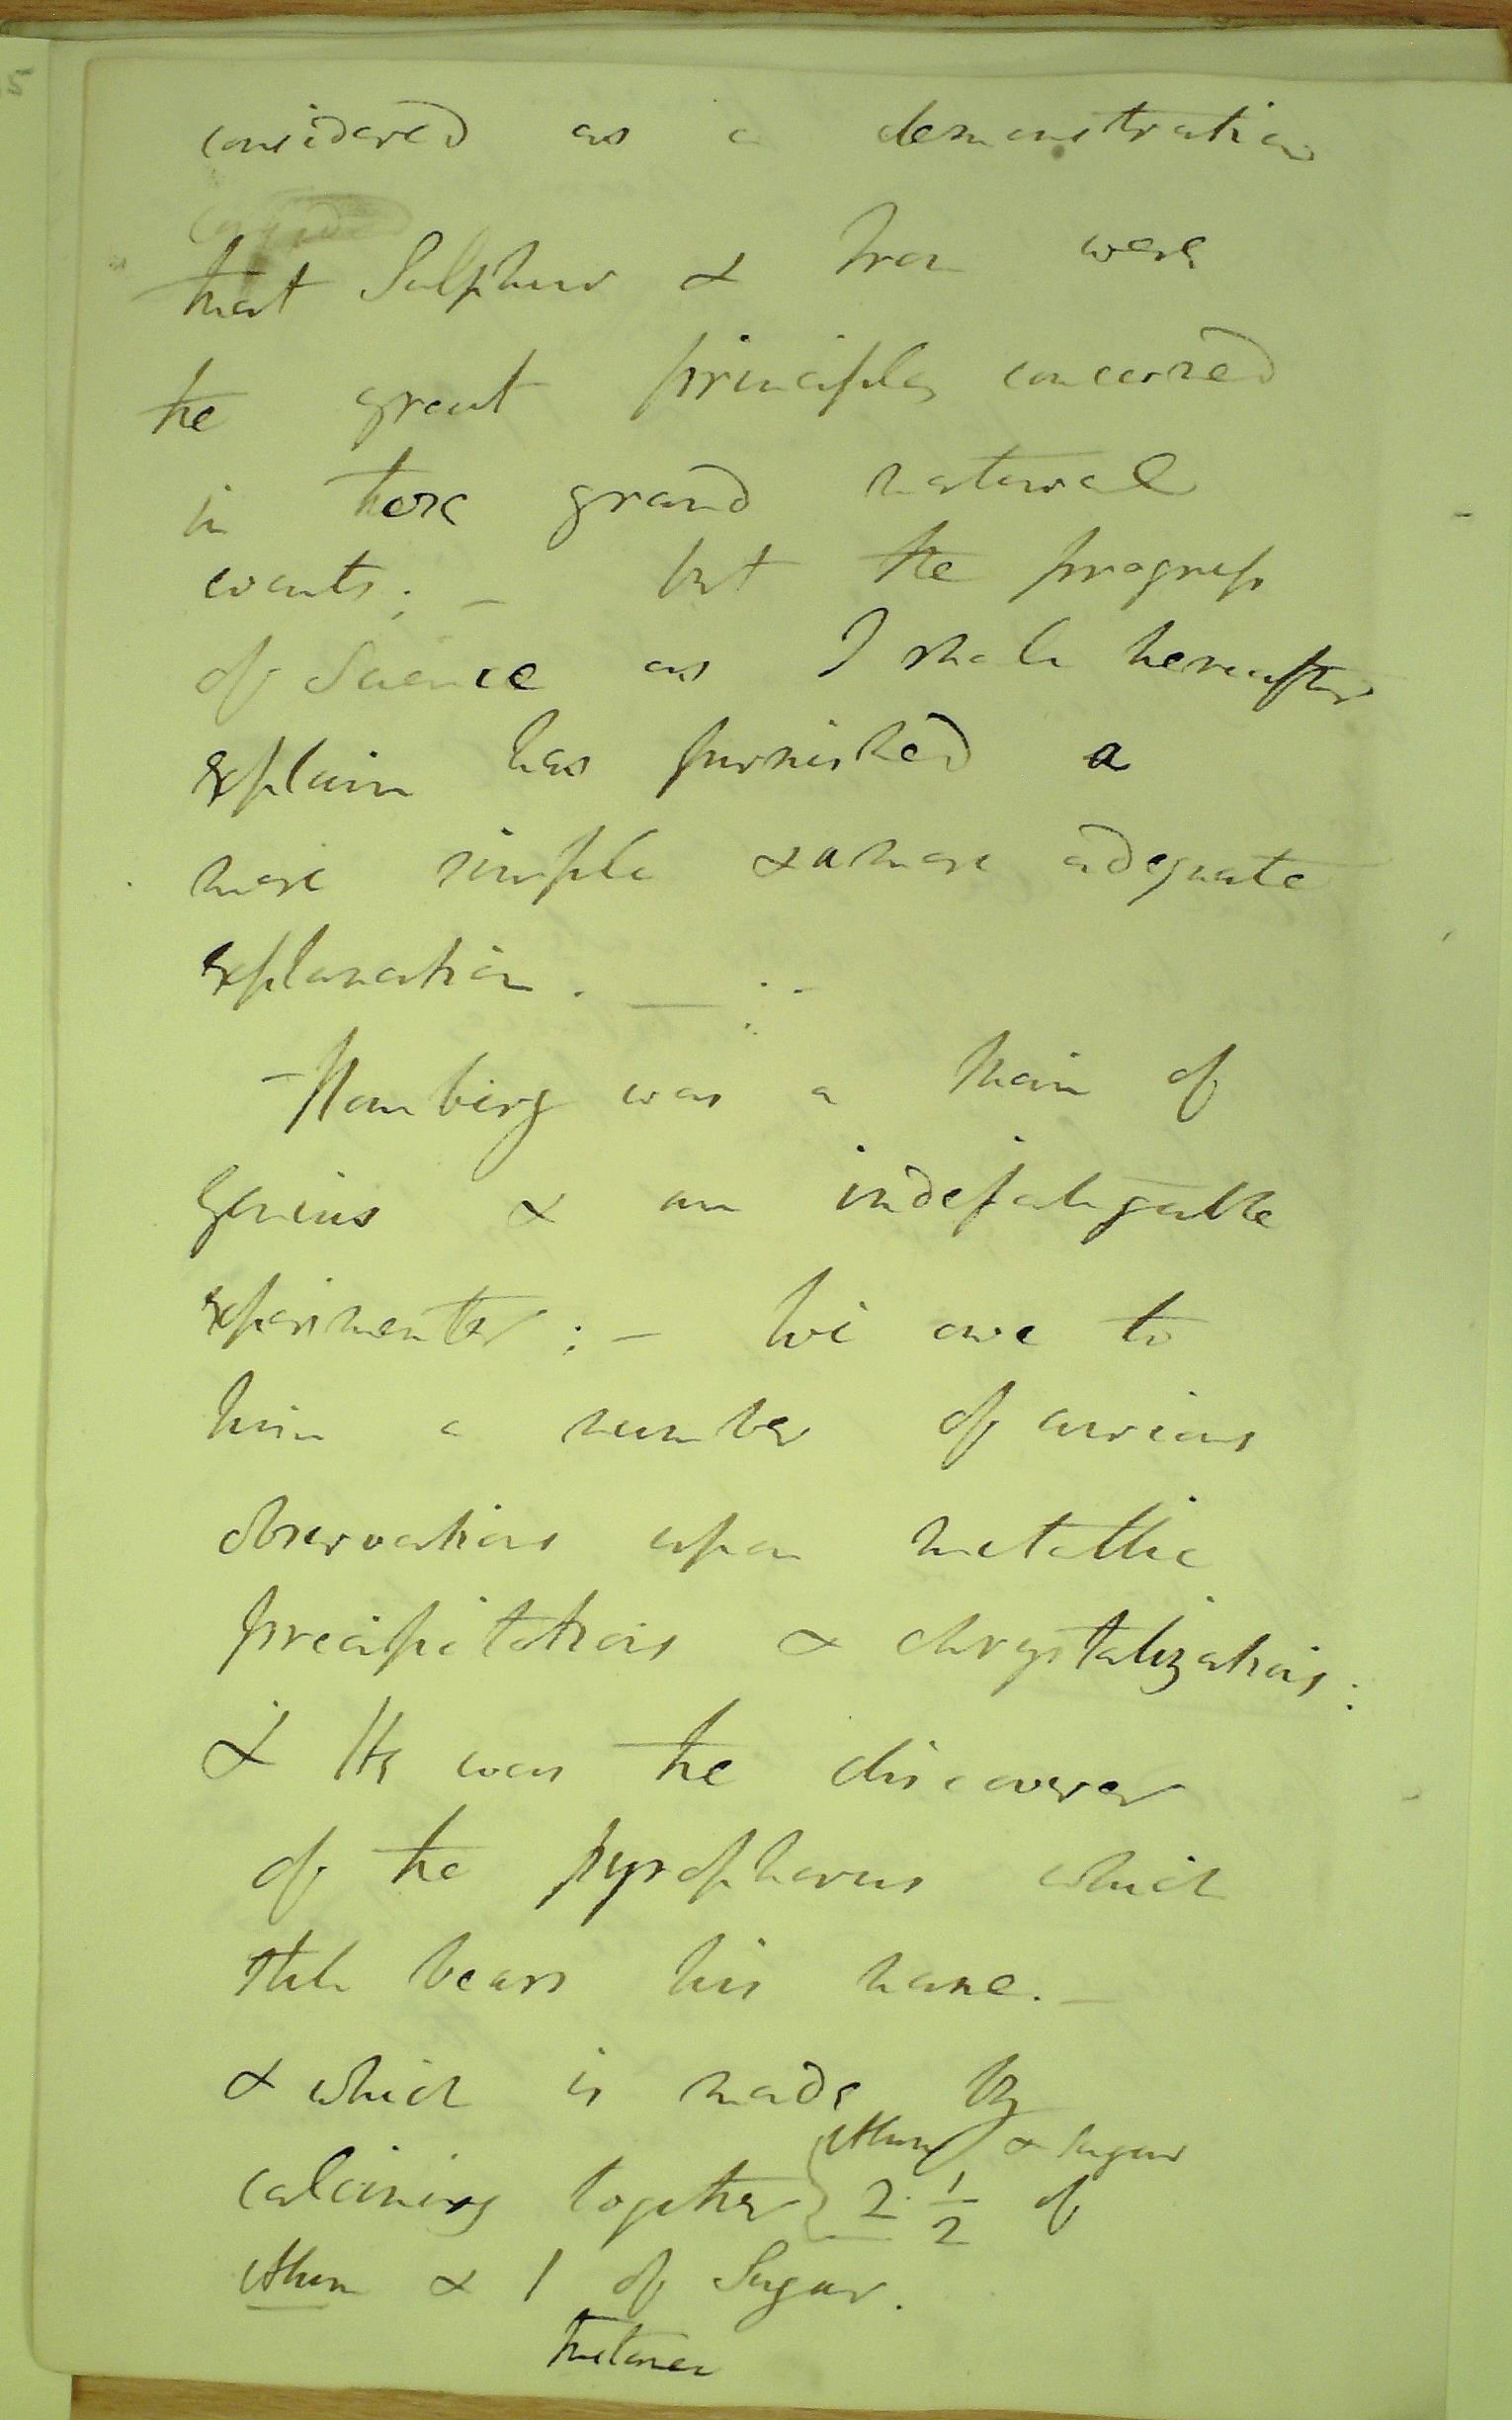 considered as a demonstration
that Sulphur & Iron were
the great principles concerned
in these grand natural
events; – but the progress
of Science as I shall hereafter
explain has furnished a
more simple & a more adequate
explanation. —
– Homberg was a Man of
Genius & an indefatigable
experimenter; – We owe to
him a number of curious
observations upon metallic
precipitations & chrystalizations:
& He was the discoverer
of the pyrophorus which
still bears his name. –
& which is made by
Alum & Sugar
calcining together 2 1/2 of
Alum & 1 of Sugar.